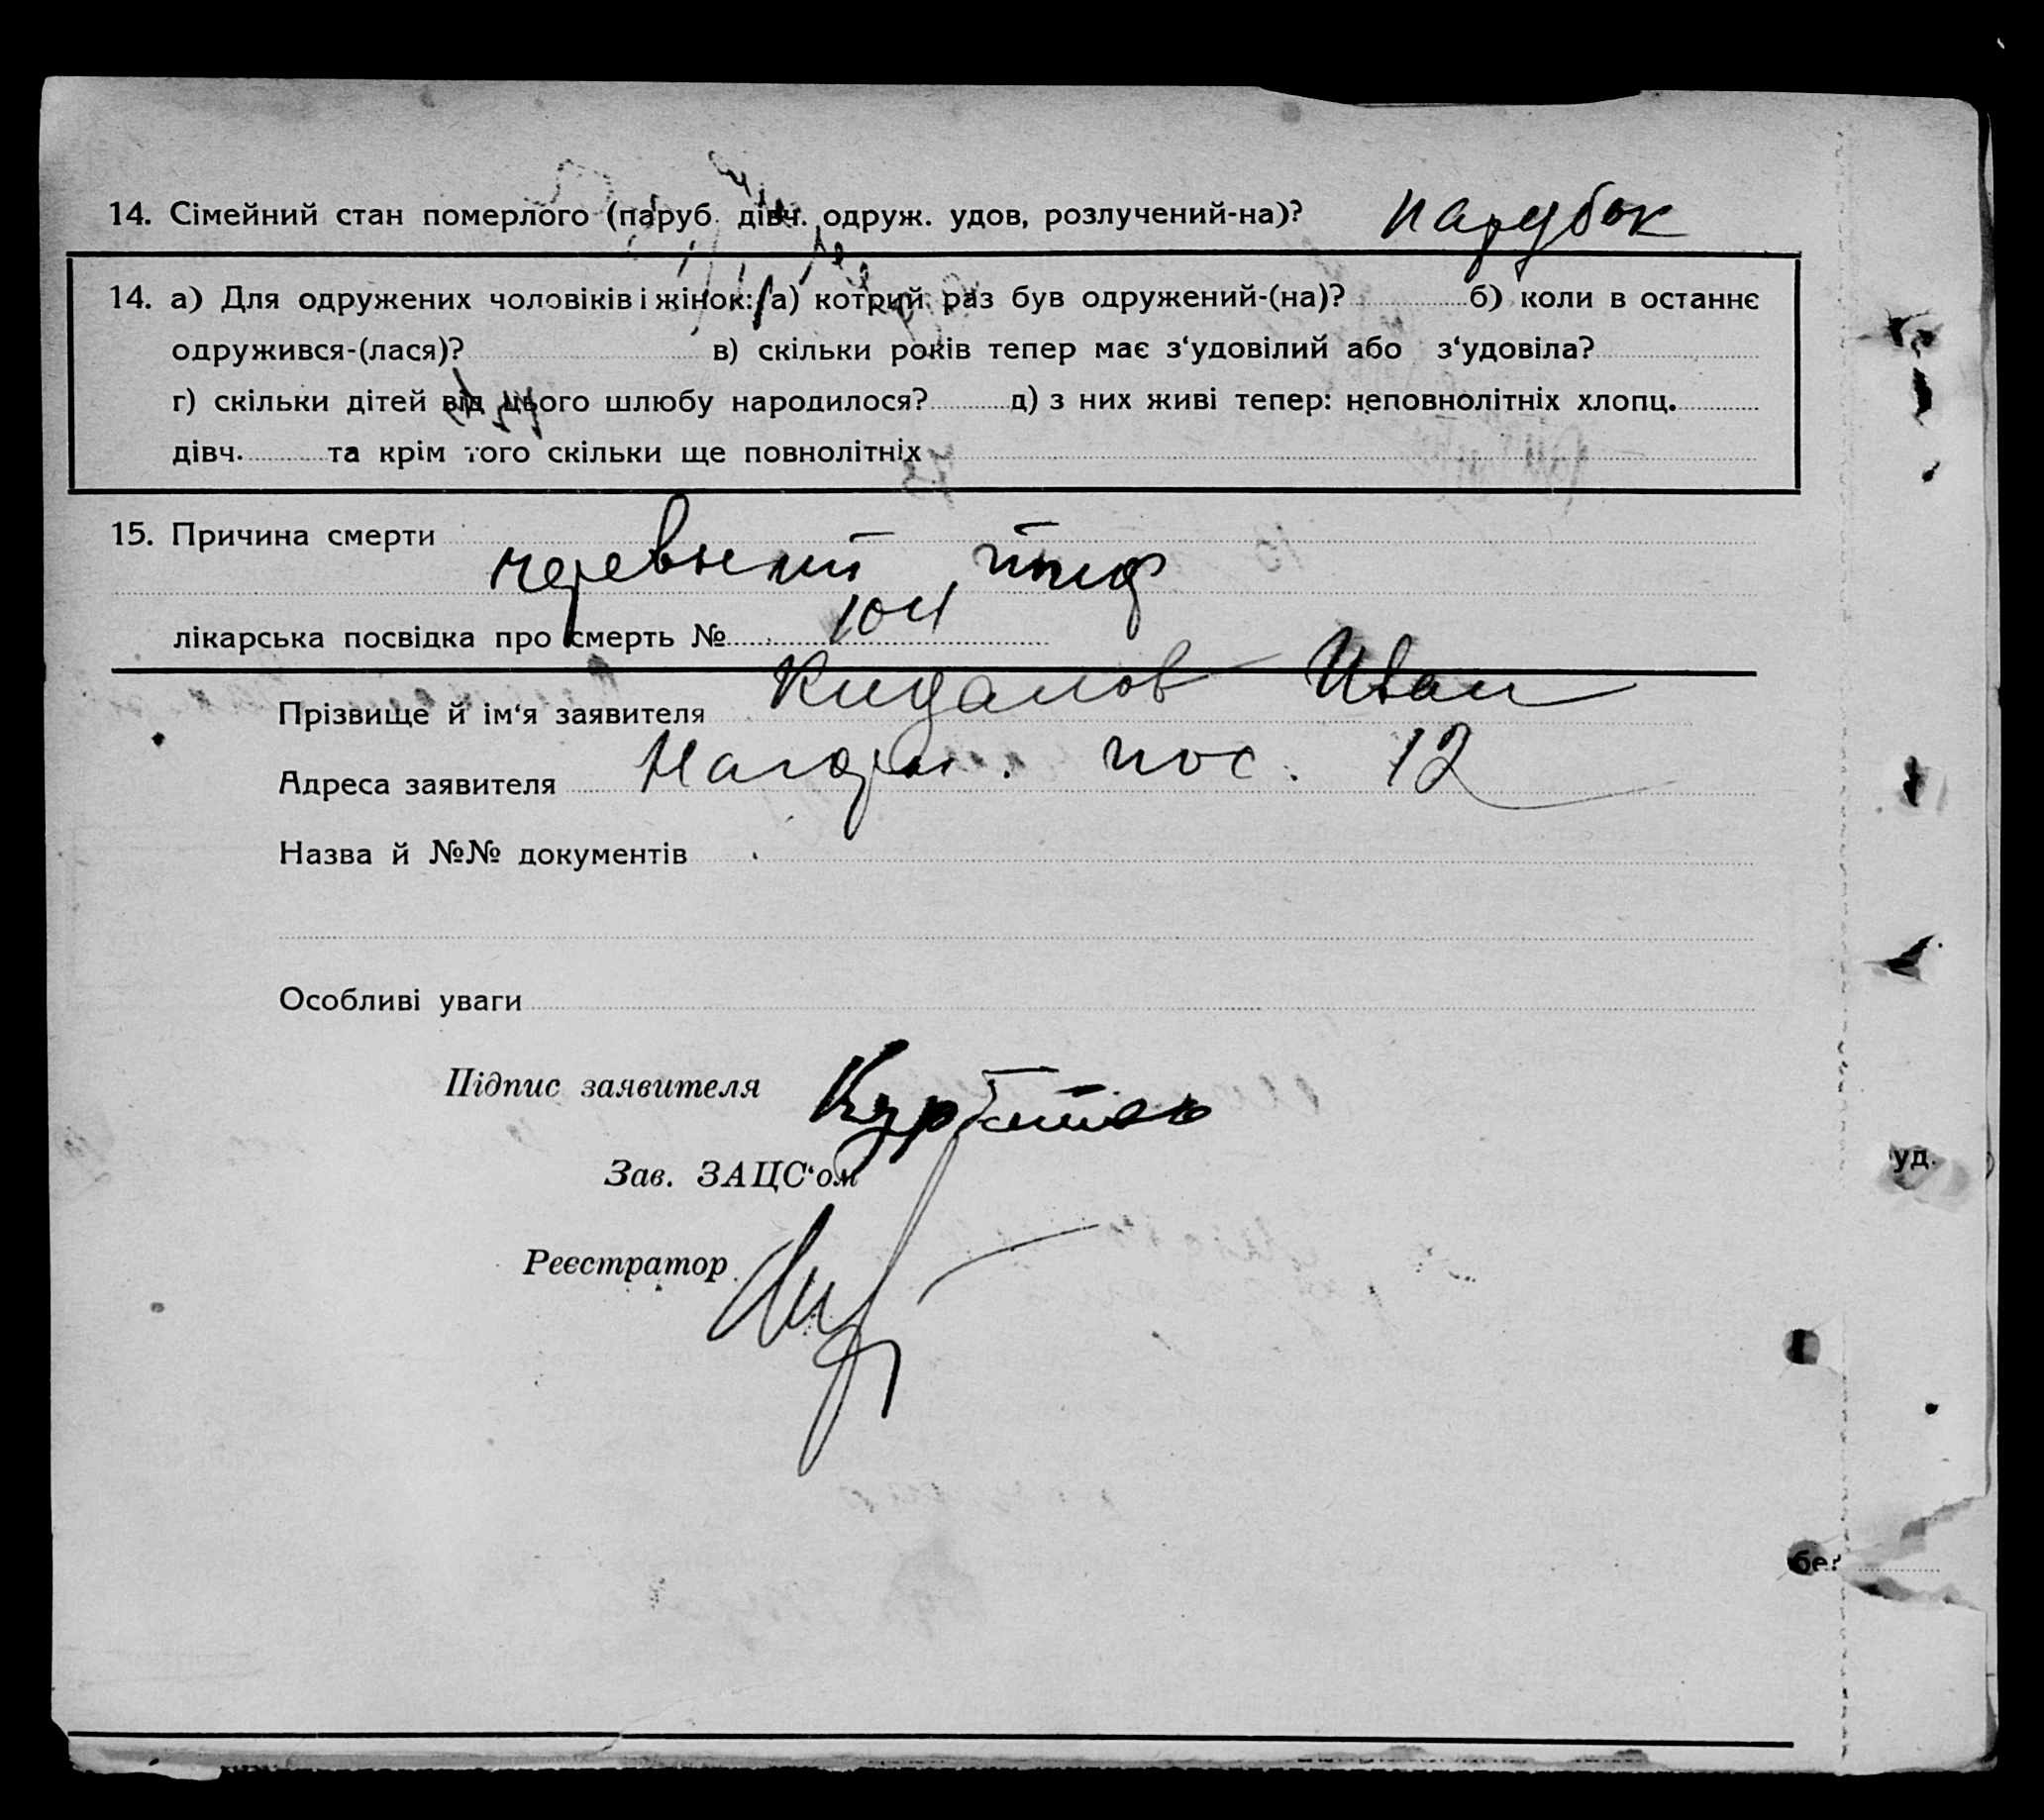 14. Сімейний стан померлого (паруб. дівч. одруж. удов, розлучений-на)? парубок
14. а) Для одружених чоловіків і жінок: а) котрий раз був одружений-(на)? б) коли в останнє
одружився-(лася)? в) скільки років тепер має з‘удовілий або з‘удовіла?
г) скільки дітей від цього шлюбу народилося? д) з них живі тепер: неповнолітніх хлопц.
дівч. та крім того скільки ще повнолітніх
15. Причина смерти
черевний тиф
лікарська посвідка про смерть № 104
Прізвище й ім‘я заявителя Иван
Адреса заявителя Нагорн. пос. 12
Назва й №№ документів
Особливі уваги
Підпис заявителя
уд.
Зав. ЗАЦС‘ом
Реєстратор
бе?